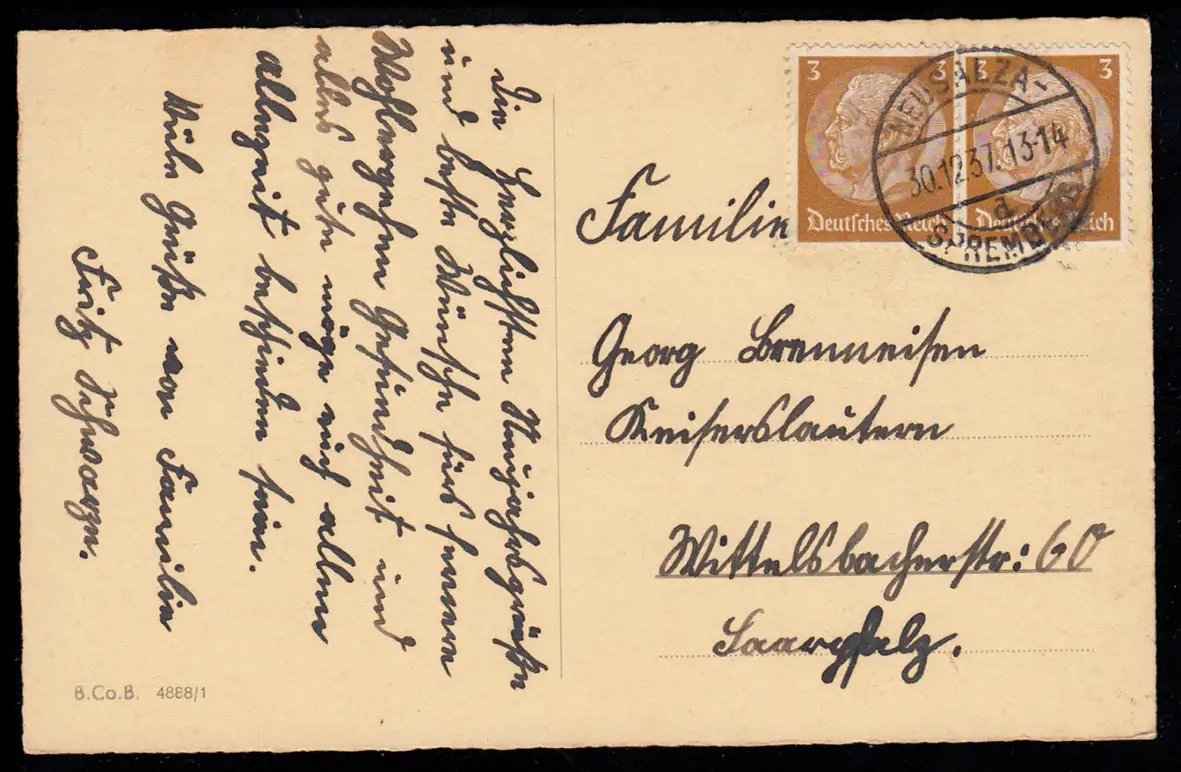 Die herzlichsten Neujahrsgrüße
und beste Wünsche fürs fernere
Wohlergehn Gesundheit und
alles gute möge euch allen
allezeit beschieden sein.
Viele Grüße von Familie
Fritz Schwarze.
B.Co.B. 4888/1
3 3
Deutsches Reich
3 3
Deutsches Reich
NEUSALZA-
30.12.37.13-14
d
SPREMBERG
Familie
Georg Brenneisen
Keiserslautern
Wittelsbacherstr: 60
Saarpfalz.